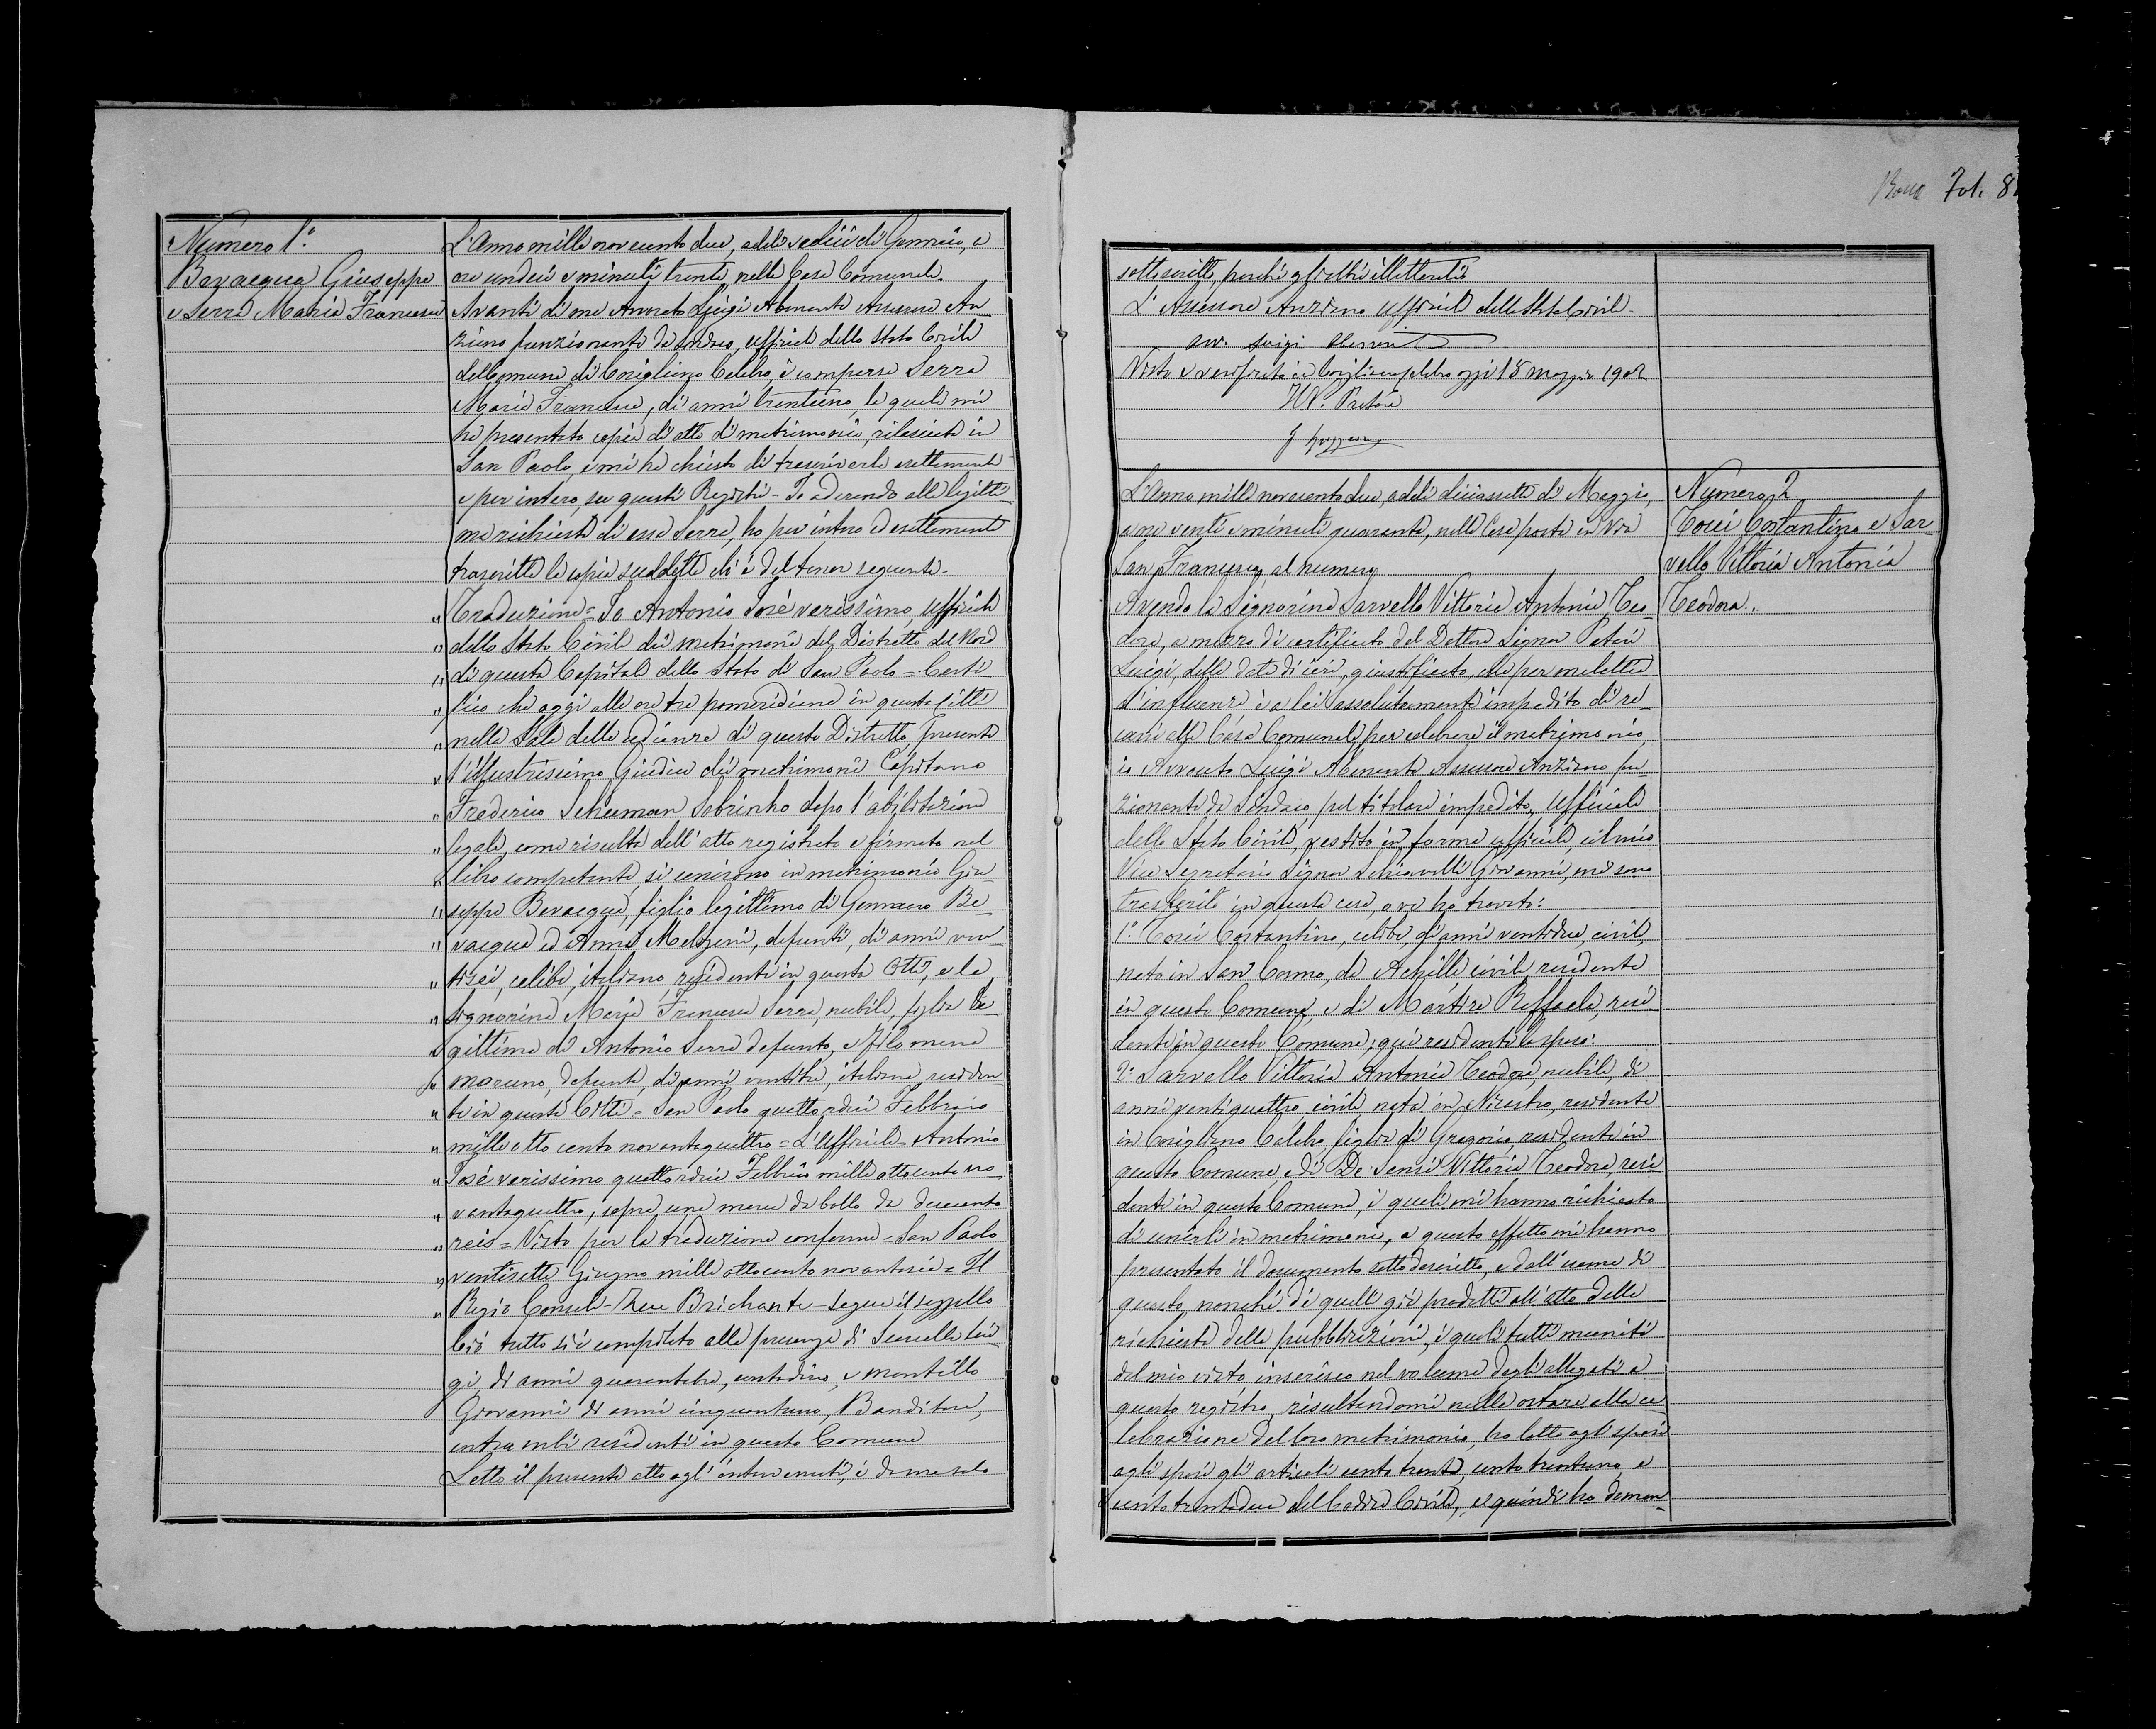 Numero 1.º
Bevacqua Giuseppe
e Serra Maria Francesca
L'Anno mille novecento due, addì sedici di Gennaio, a
ore undici e minuti trenta, nella Casa Comunale.
Avanti di me Avvocato Luigi Abenante Assessore An-
ziano funzionante da Sindaco, Ufficiale dello Stato Civile
del Comune di Corigliano Calabro, è comparsa Serra
Maria Francesca, di anni trentuno, la quale mi
ha presentato copia di atto di matrimonio, rilasciata in
San Paolo, e mi ha chiesto di trascriverla esattamente
e per intero, su questi Registri - Io aderendo alla legitti-
ma richiesta di essa Serra, ho per intero ed esattamente
trascritta la copia suddetta che è del tenor seguente.
" Traduzione = Io Antonio José verissimo, Ufficiale
" dello Stato Civile dei matrimonî del Distretto del Nord
" di questa Capitale dello Stato di San Paolo = Certi-
" fico che oggi alle ore tre pomeridiane in questa città
" nella Sala delle udienze di questo Distretto, presente
" l'illustrissimo Giudice dei matrimonî Capitano
" Frederico Schuman Sobrinho dopo l'abilitazione
" legale, come risulta dell'atto registrato e firmato nel
" libro competente si unirono in matrimonio Giu-
" seppe Bevacqua, figlio legittimo di Gennaro Be-
" vacqua ed Anna defunti, di anni ven-
" tisei, celibe, italiano, residente in questa Città, e la
" signorina Maria Francesca Serra, nubile, figlia le-
" gittima di Antonio Serra defunto, e Filomena
" moruno, defunta, di anni ventitre, italiana residen-
" te in questa Città = San Paolo quattordici Febbraio
" mille otto cento novantaquattro = L'Ufficiale - Antonio
" José verissimo quattordici Febbraio mille ottocento no-
" vantaquattro, sopra una marca da bollo da duecento
" reis = Visto per la traduzione conforme - San Paolo
" ventisette Giugno mille ottocento novantasei = Il
" Regio Console - Brichante - Segue il suggello
Ciò tutto si è compiuto alla presenza di Lui-
gi, di anni quarantatre, contadino, e Montillo
Giovanni di anni cinquantuno, Banditore,
entrambi residenti in questo Comune
Letto il presente atto agl'intervenuti, è da me solo
Fol. 8
sottoscritto, perché gli altri illetterati
L'Assessore Anziano Ufficiale dello Stato Civile
avv. Luigi Abenante
Visto e verificato in Corigliano Calabro oggi 18 maggio 1902
Il V. Pretore
L'Anno mille novecento due, addì diciassette di Maggio,
a ore venti e minuti quaranta, nella Casa posta in Via
San Francesco, al numero
Avendo la Signorina Sarvello Vittoria Antonia Teo-
dora, a mezzo di certificato del Dottore Signor
Luigi, della data di ieri, giustificato, che per malattia
d'influenza è a lei assolutamente impedito di re-
carsi alla Casa Comunale, per celebrare il matrimonio,
io Avvocato Luigi Abenante Assessore Anziano fun-
zionante da Sindaco, pel titolare impedito, Ufficiale
dello Stato Civile, vestito in forma ufficiale, col mio
Vice Segretario Signor Schiavelli Giovanni, mi sono
trasferito in questa casa, ove ho trovato:
1.º Tocci Costantino, celibe, di anni ventidue, civile,
nato in San Cosmo, da Achille civile residente
in questo Comune, e di Martire Raffaela, resi-
dente in questo Comune; qui residente lo sposo:
2.º Sarvello Vittoria Antonia Teodora, nubile, di
anni ventiquattro, civile nata in Nicastro, residente
in Corigliano Calabro figlia di Gregorio residente in
questo Comune, e di De Sensi Vittoria Teodora, resi
dente in questo Comune, i quali mi hanno richiesto
di unirli in matrimonio, a questo effetto mi hanno
presentato il documento sottodescritto, e dall'esame di
questo, nonché di quelli già prodotti all'atto della
richiesta delle pubblicazioni, i quali tutti muniti
del mio visto, inserisco nel volume degli allegati a
questo registro, risultandomi nulla ostare alla ce
lebrazione del loro matrimonio, ho letto agli sposi
agli sposi gli articoli cento trenta, cento trentuno, e
cento trentadue del Codice Civile, e quindi ho doman-
Numero 2
Tocci Costantino e Sar
vello Vittoria Antonia
Teodora.